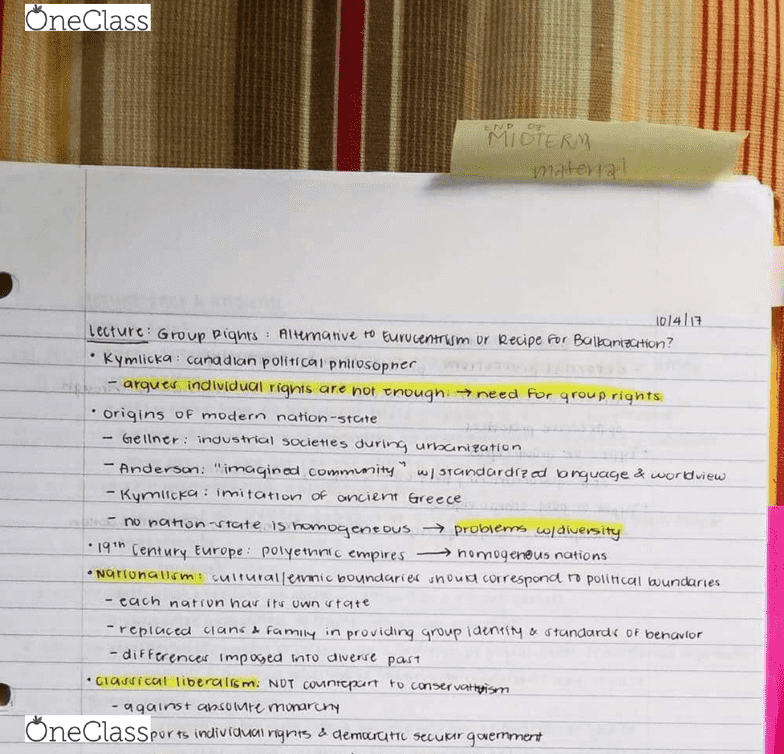 OneClass
END OF
MIDTERM
material
10/4/17
Lecture: Group Rights: Alternative to Eurocentrism or Recipe For Balkanization?
• Kymlicka: canadian political philosopher
- argues individual rights are not enough → need for group rights
• origins of modern nation-state
- Gellner: industrial societies during urbanization
- Anderson: "imagined community" w/ standardized language & worldview
- Kymlicka: imitation of ancient Greece
- no nation-state is homogeneous → problems w/diversity
• 19th Century Europe: polyethnic empires → homogenous nations
• Nationalism: cultural/ethnic boundaries should correspond to political boundaries
- each nation has its own state
- replaced clans & family in providing group identity & standards of behavior
- differences imposed into diverse past
• classical liberalism: NOT counterpart to conservativism
- against absolute monarchy
OneClass
ports individual rights & democratic secular government